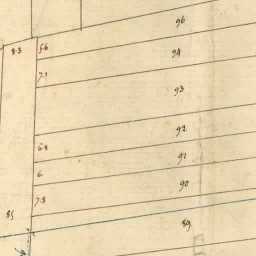 96
8.3 5.6
94
7.1
93
92
6.8
91
6
90
7.8
85
89